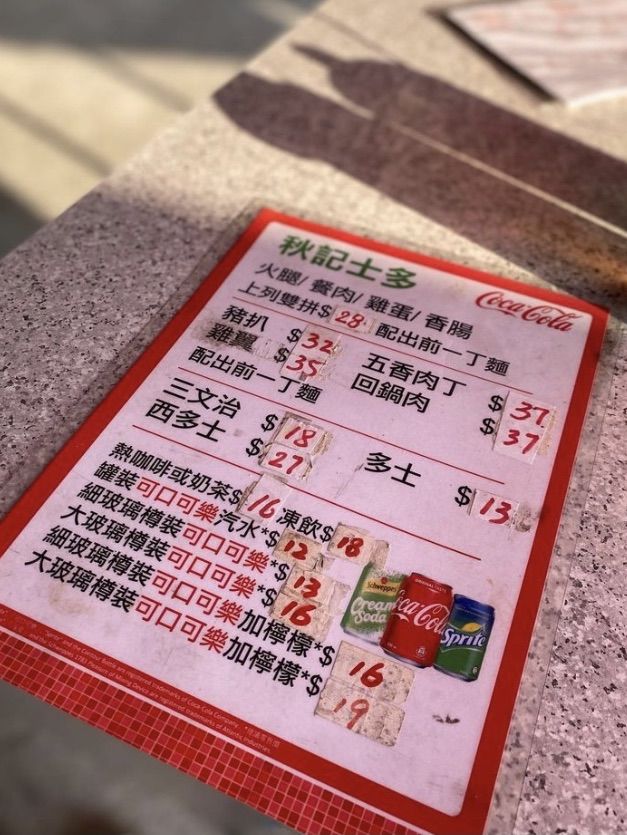 秋記士多
Coca-Cola
火腿/ 餐肉/ 雞蛋/ 香腸
上列雙拼$28 配出前一丁麵
豬扒 $32 五香肉丁 $37
雞翼 $35 回鍋肉 $37
配出前一丁麵
三文治 $18 多士 $13
西多士 $27
熱咖啡或奶茶$16 凍飲$18
罐裝可口可樂汽水*$12
細玻璃樽裝可口可樂*$13
大玻璃樽裝可口可樂*$16
細玻璃樽裝可口可樂加檸檬*$16
大玻璃樽裝可口可樂加檸檬*$19
Schweppes
Cream Soda
ORIGINAL TASTE
Coca-Cola
Sprite
"Sprite" and the Contour Bottle are registered trademarks of Coca-Cola Company.
are registered trademarks of Atlantic Industries.